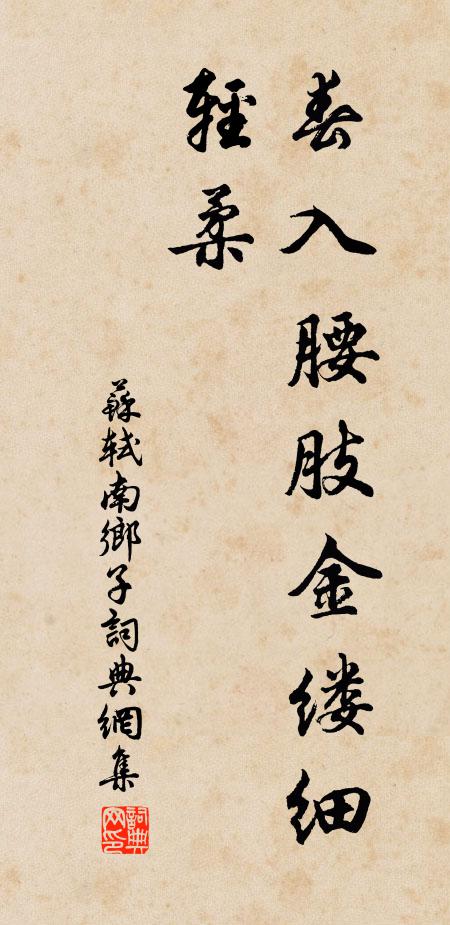 春入腰肢金缕细
輕柔
蘇軾南鄉子詞典網集
詞典网印